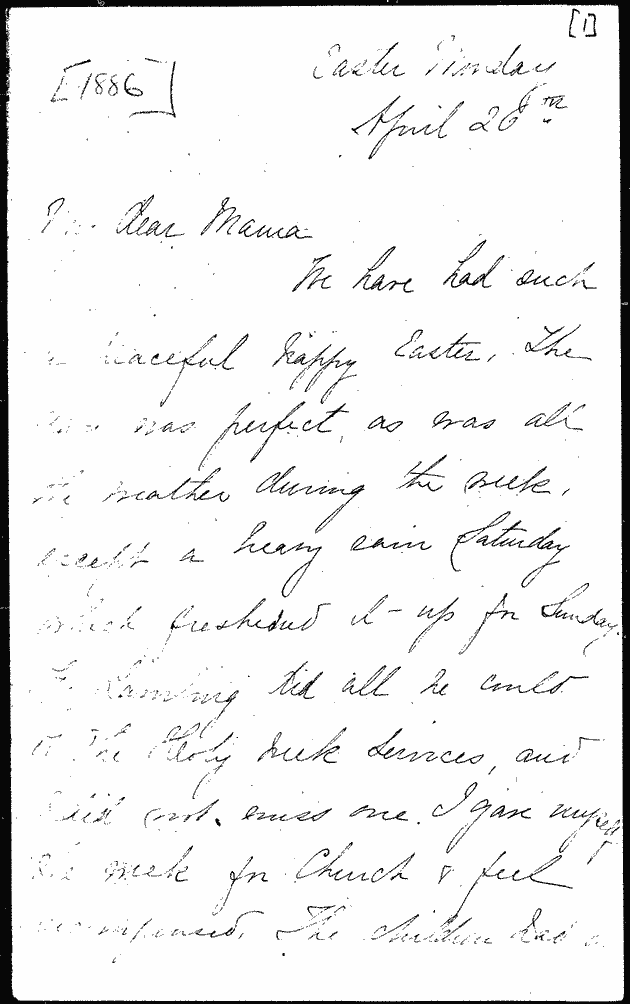 [1]
[1886]
Easter Monday
April 26th
My dear Mama
We have had such
a peaceful happy Easter. The
was perfect, as was all
the weather during the week,
except a heavy rain Saturday
which freshened it up for Sunday.
Lambing did all he could
the Holy Week services, and
I did not miss one. I gave myself
the week for Church & feel
recompensed. The children had a